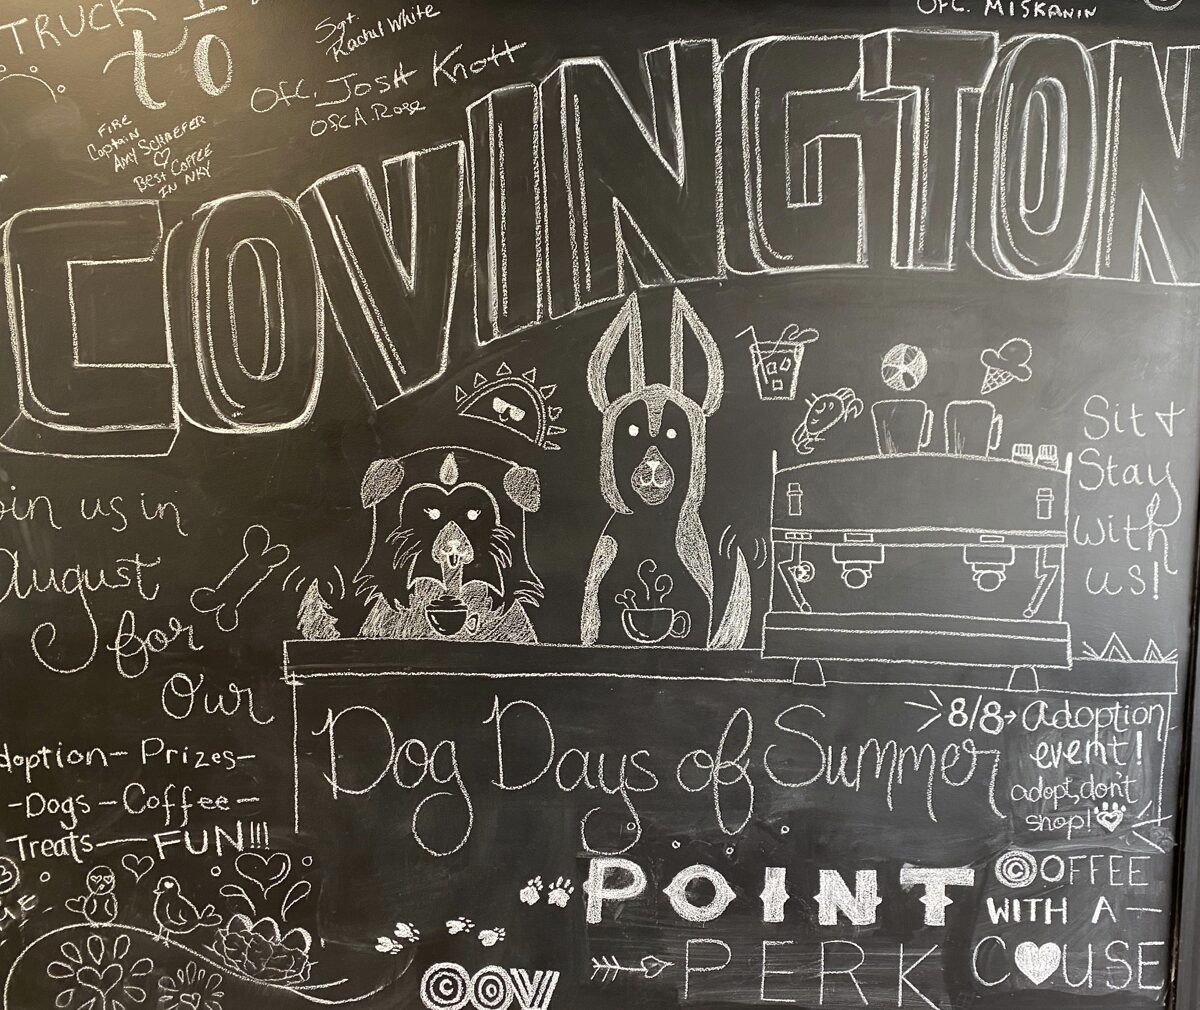 TRUCK 1
to
Sgt.
Rachul White
Ofc. Josh Knott
Ofc A. Rose
OFC. MISKANIN
FIRE
Captain
AMY SCHAEFER
BEST COFFEE
IN NKY
COVINGTON
oin us in
August
for
Our
doption - Prizes -
- Dogs - Coffee -
Treats - FUN!!!
Sit &
Stay
with
us!
Dog Days of Summer
8/8 → Adoption
event!
adopt, don't
shop!
POINT
PERK
COFFEE
WITH A -
CAUSE
COV